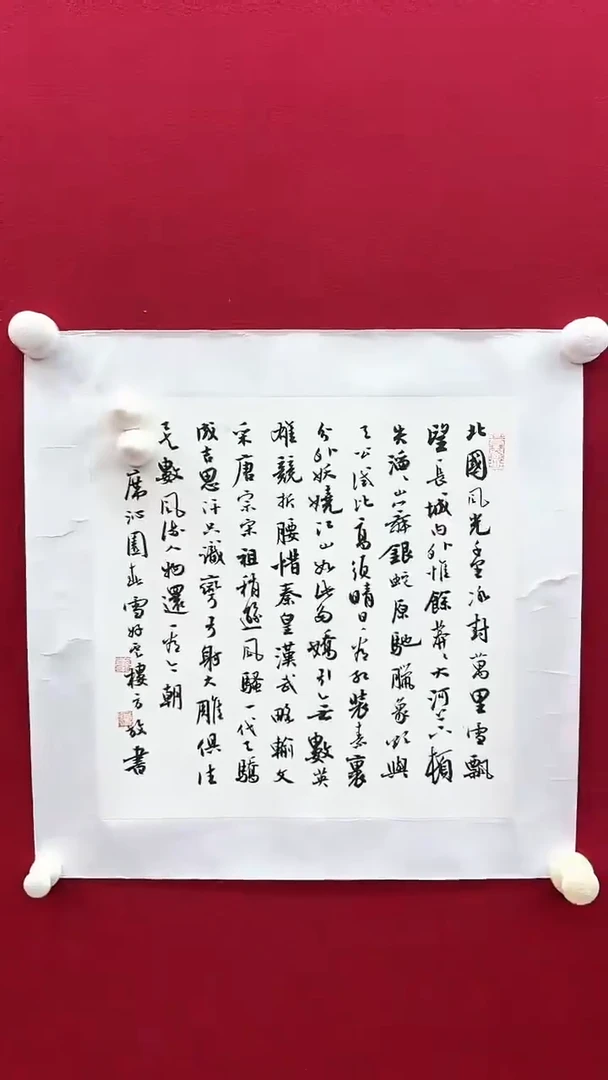 北國風光千里冰封萬里雪飄
望長城内外惟餘莽、大河上下頓
失滔、山舞銀蛇原馳臘象欲與
天公試比高須晴日看紅裝素裹
分外妖嬈江山如此多嬌引無數英
雄競折腰惜秦皇漢武略輸文
采唐宗宋祖稍遜風騷一代天驕
成吉思汗只識彎弓射大雕俱往
矣數風流人物還看今朝
沁園春雪樓書